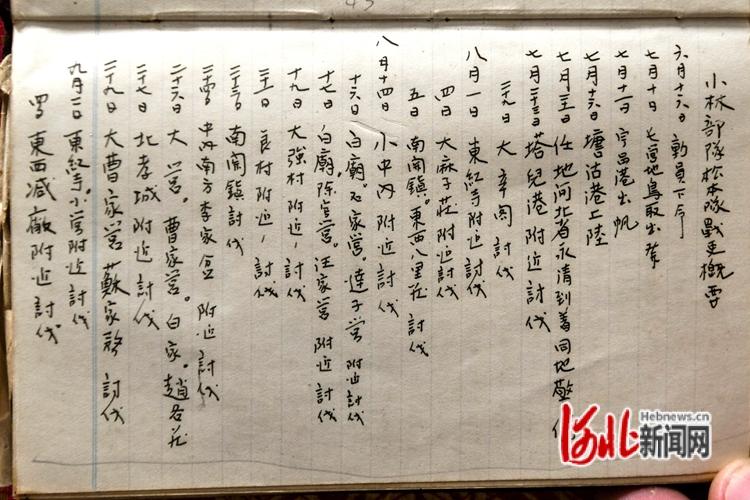 43
小林部隊松本隊戰史概要
六月十六日 動員下令
七月十日 屯営地鳥取出発
七月十一日 宇品港出帆
七月十六日 塘沽港上陸
七月二十一日 任地河北省永清到着同地警備
七月二十三日 塔兒港附近討伐
二十九日 大辛閣討伐
八月一日 東紅寺附近討伐
四日 大麻子莊附近討伐
五日 南関鎮。東西八里莊 討伐
八月十四日 小中内 附近 討伐
十六日 白廟。石家営。達子営 附近討伐
十七日 白廟。陳家営。汪家営 附近 討伐
十九日 大強村附近 討伐
二十一日 良村附近 討伐
二十三日 南関鎮 討伐
二十四日 中内南方李家 附近 討伐
二十六日 大営。曹家営。白家。趙各莊
二十七日 北孝城 附近 討伐
二十九日 大曹家営 蘇家務 討伐
九月二日 東紅寺。小営附近 討伐
四日 東西減廠附近 討伐
河北新闻网
Hebnews.cn